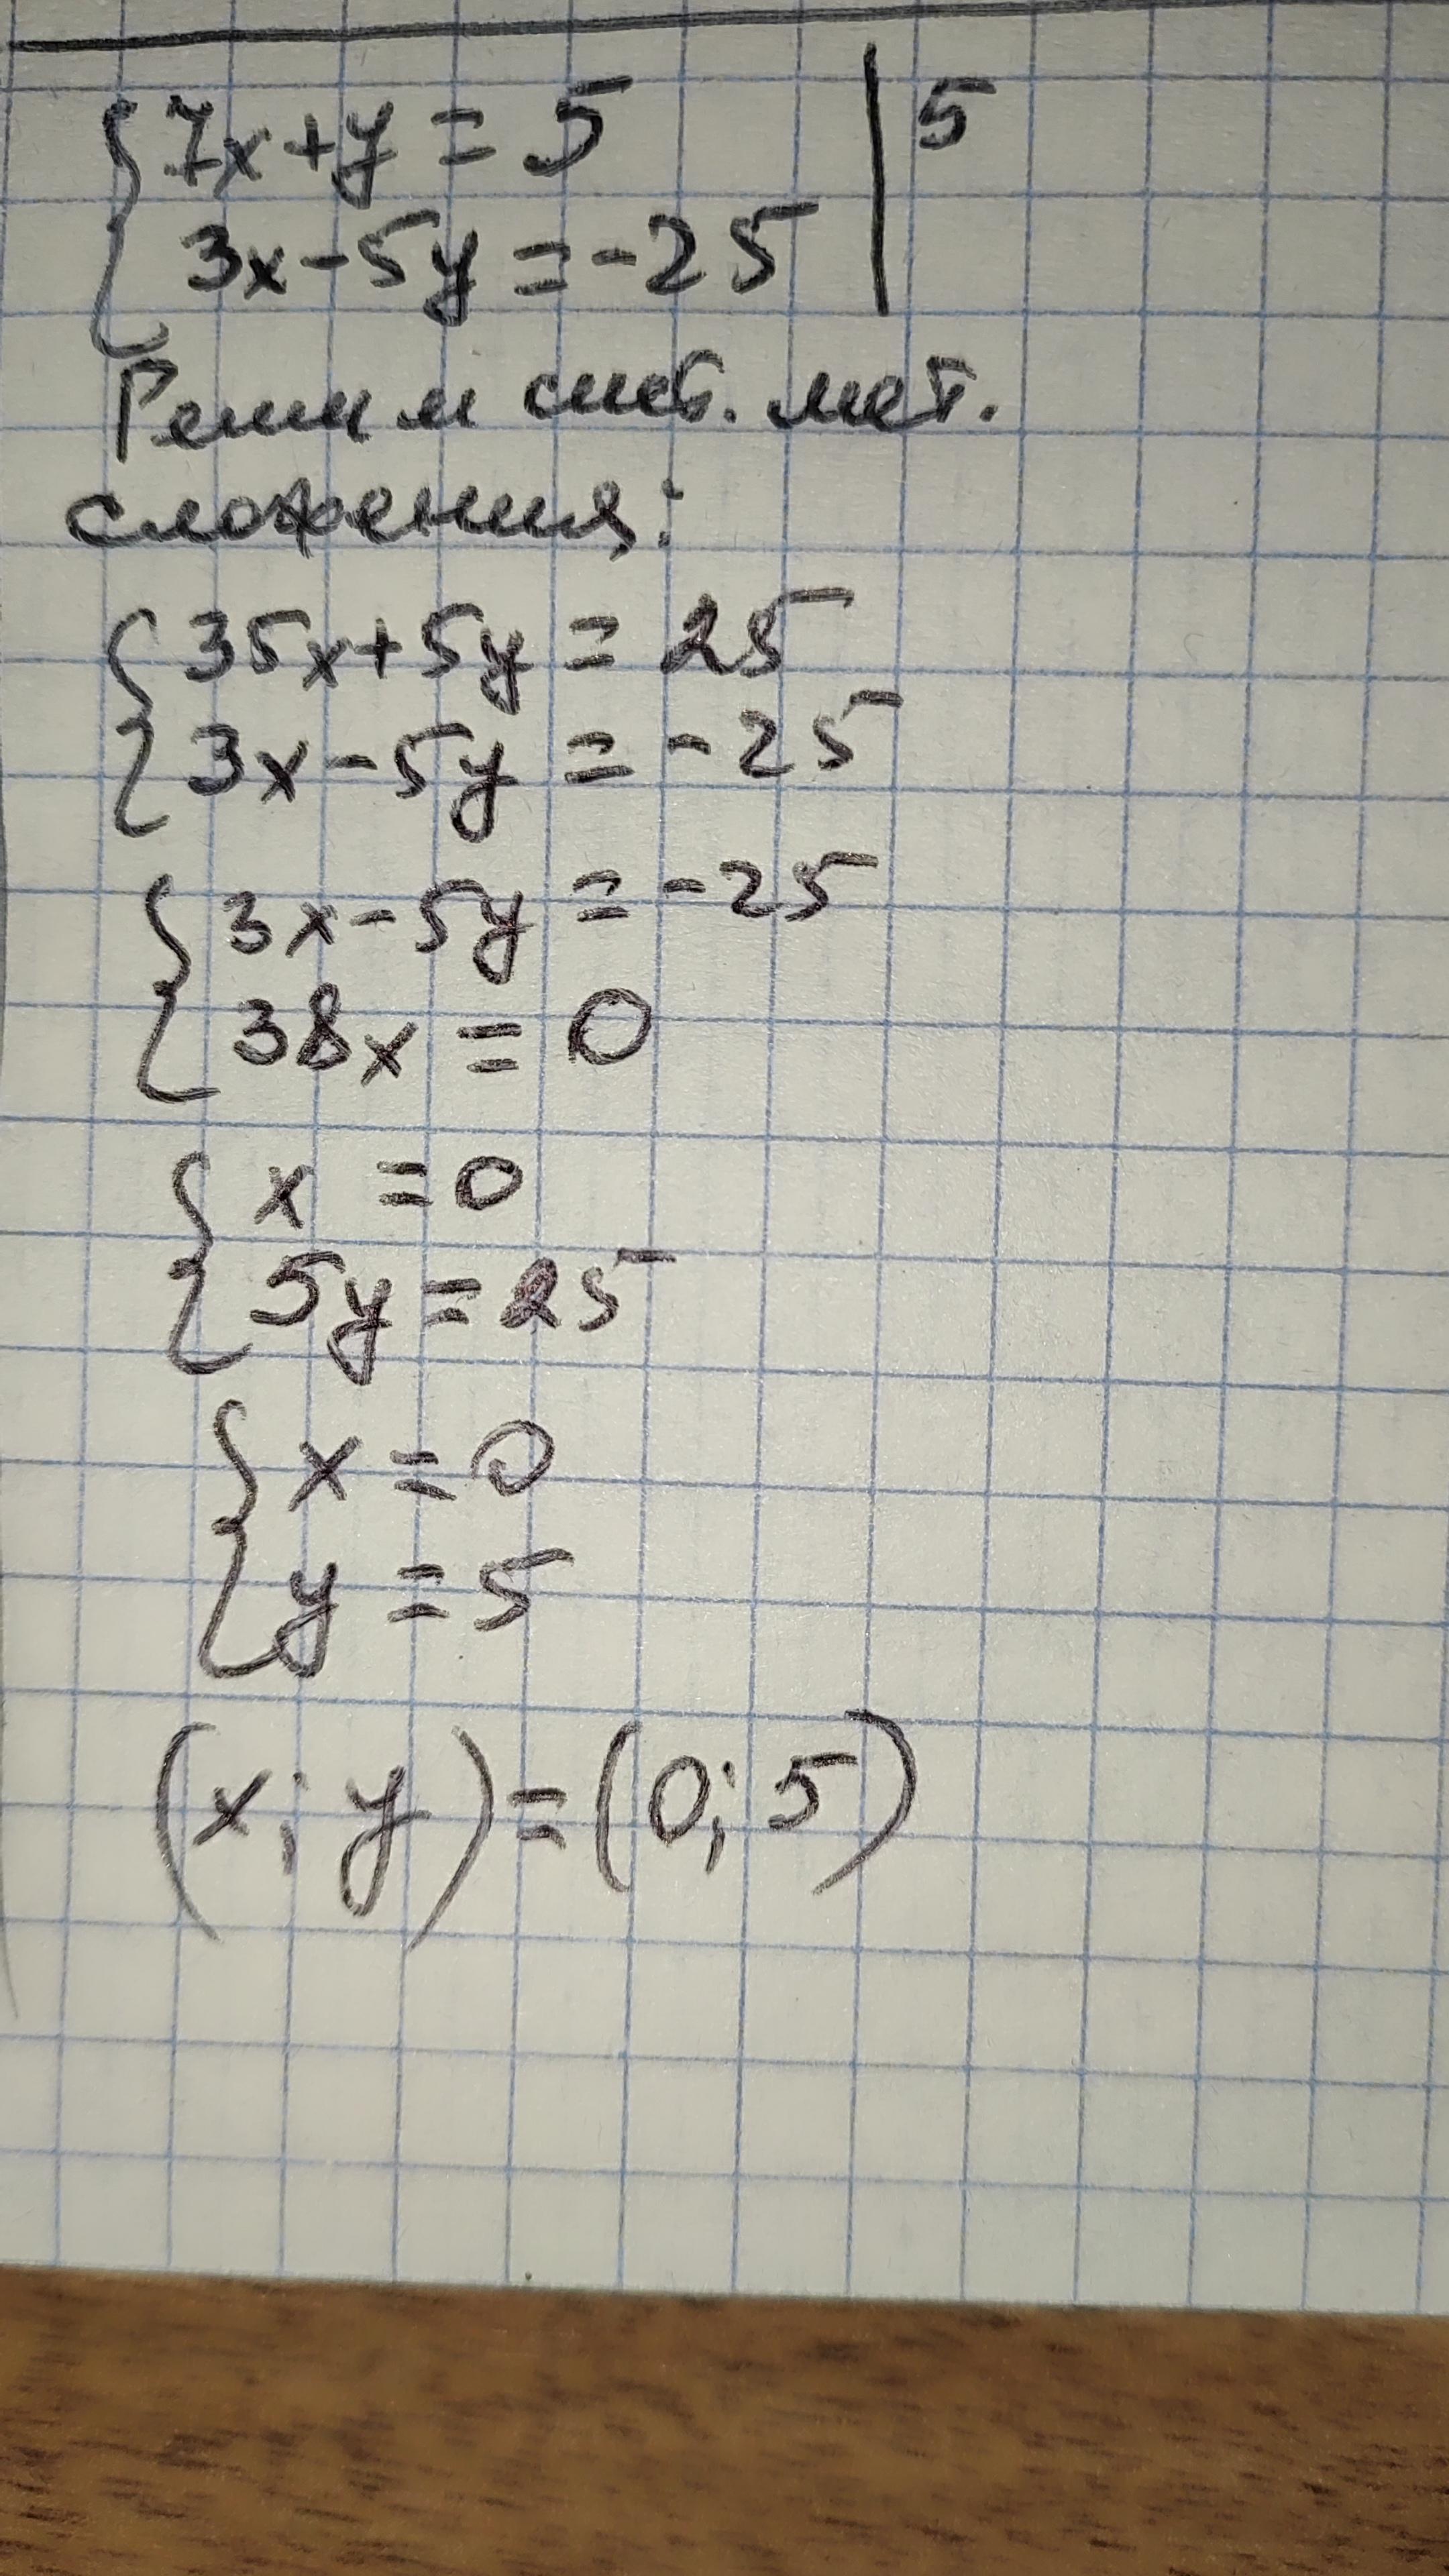 {7x+y = 5 | 5
3x-5y = -25
Решим сист. мет.
сложения:
{35x+5y = 25
3x-5y = -25
{3x-5y = -25
38x = 0
{x = 0
5y = 25
{x = 0
y = 5
(x; y) = (0; 5)